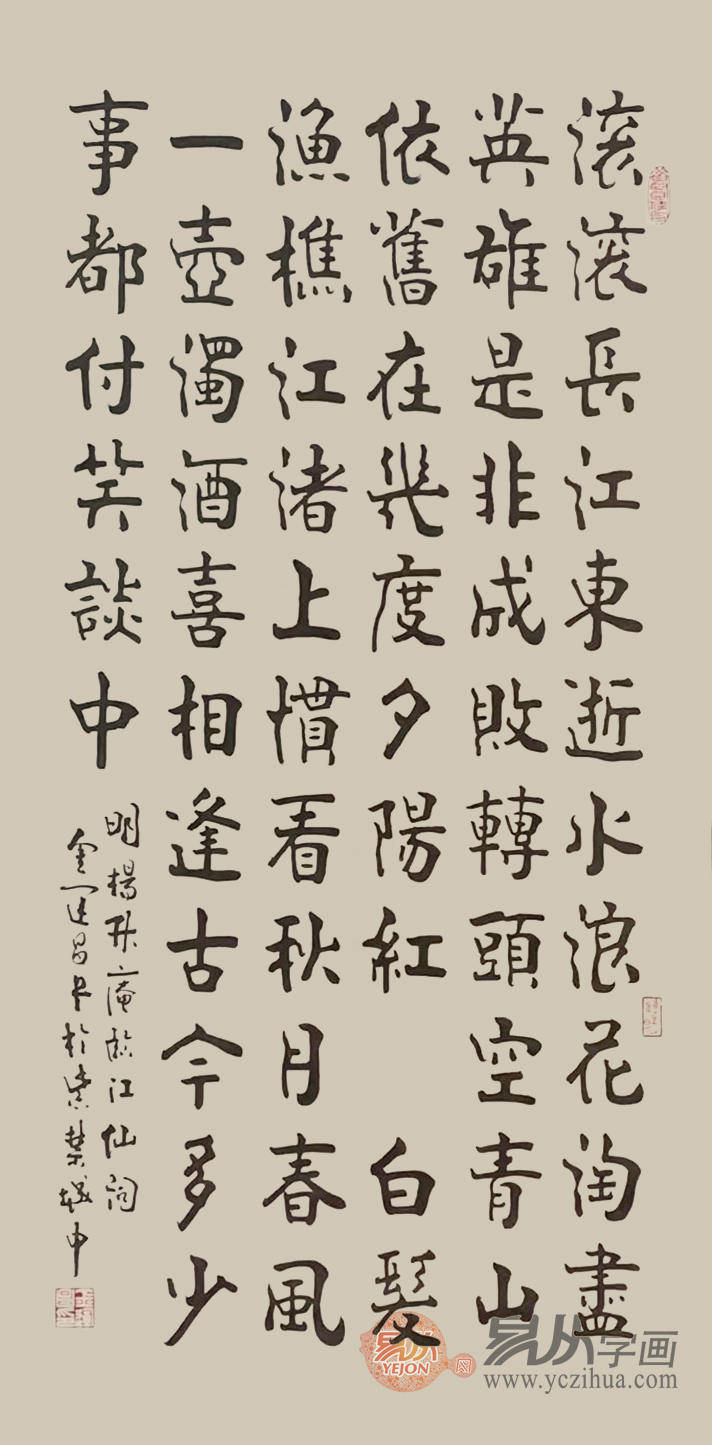 滚滚長江東逝水浪花淘盡
英雄是非成敗轉頭空青山
依舊在幾度夕陽紅 白髮
漁樵江渚上慣看秋月春風
一壺濁酒喜相逢古今多少
事都付笑談中
明楊升庵臨江仙詞
金運昌書於紫禁城中
易从字画
YEJON
www.yczihua.com